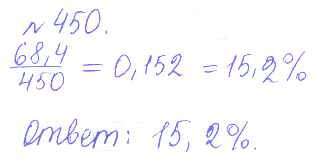 № 450.
68,4/450 = 0,152 = 15,2%
Ответ: 15,2%.